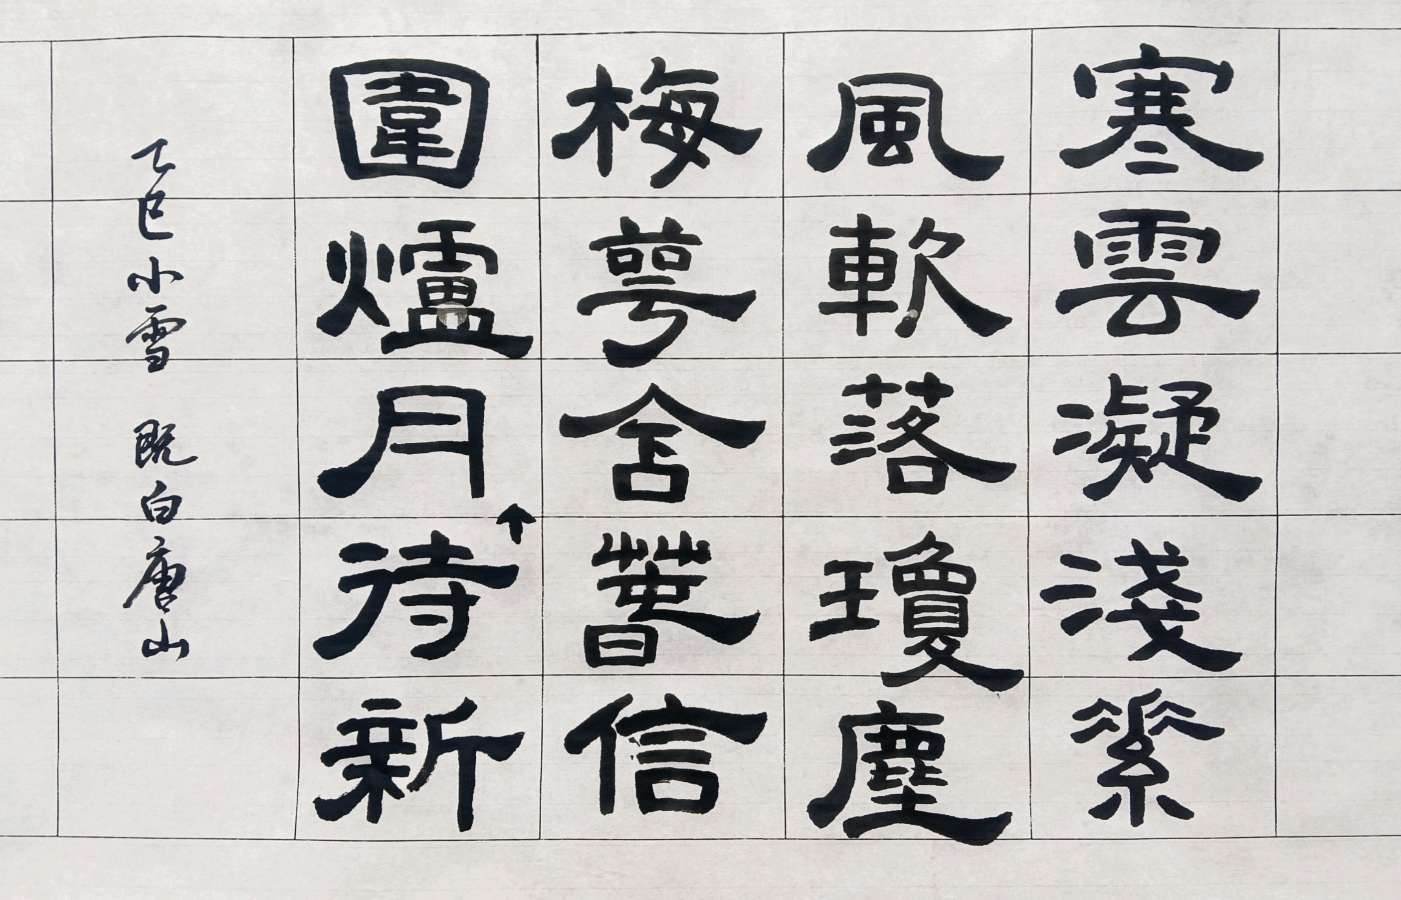 寒雲凝淺素
風軟落瓊塵
梅萼含春信
圍爐月待新
乙巳小雪 既白唐山